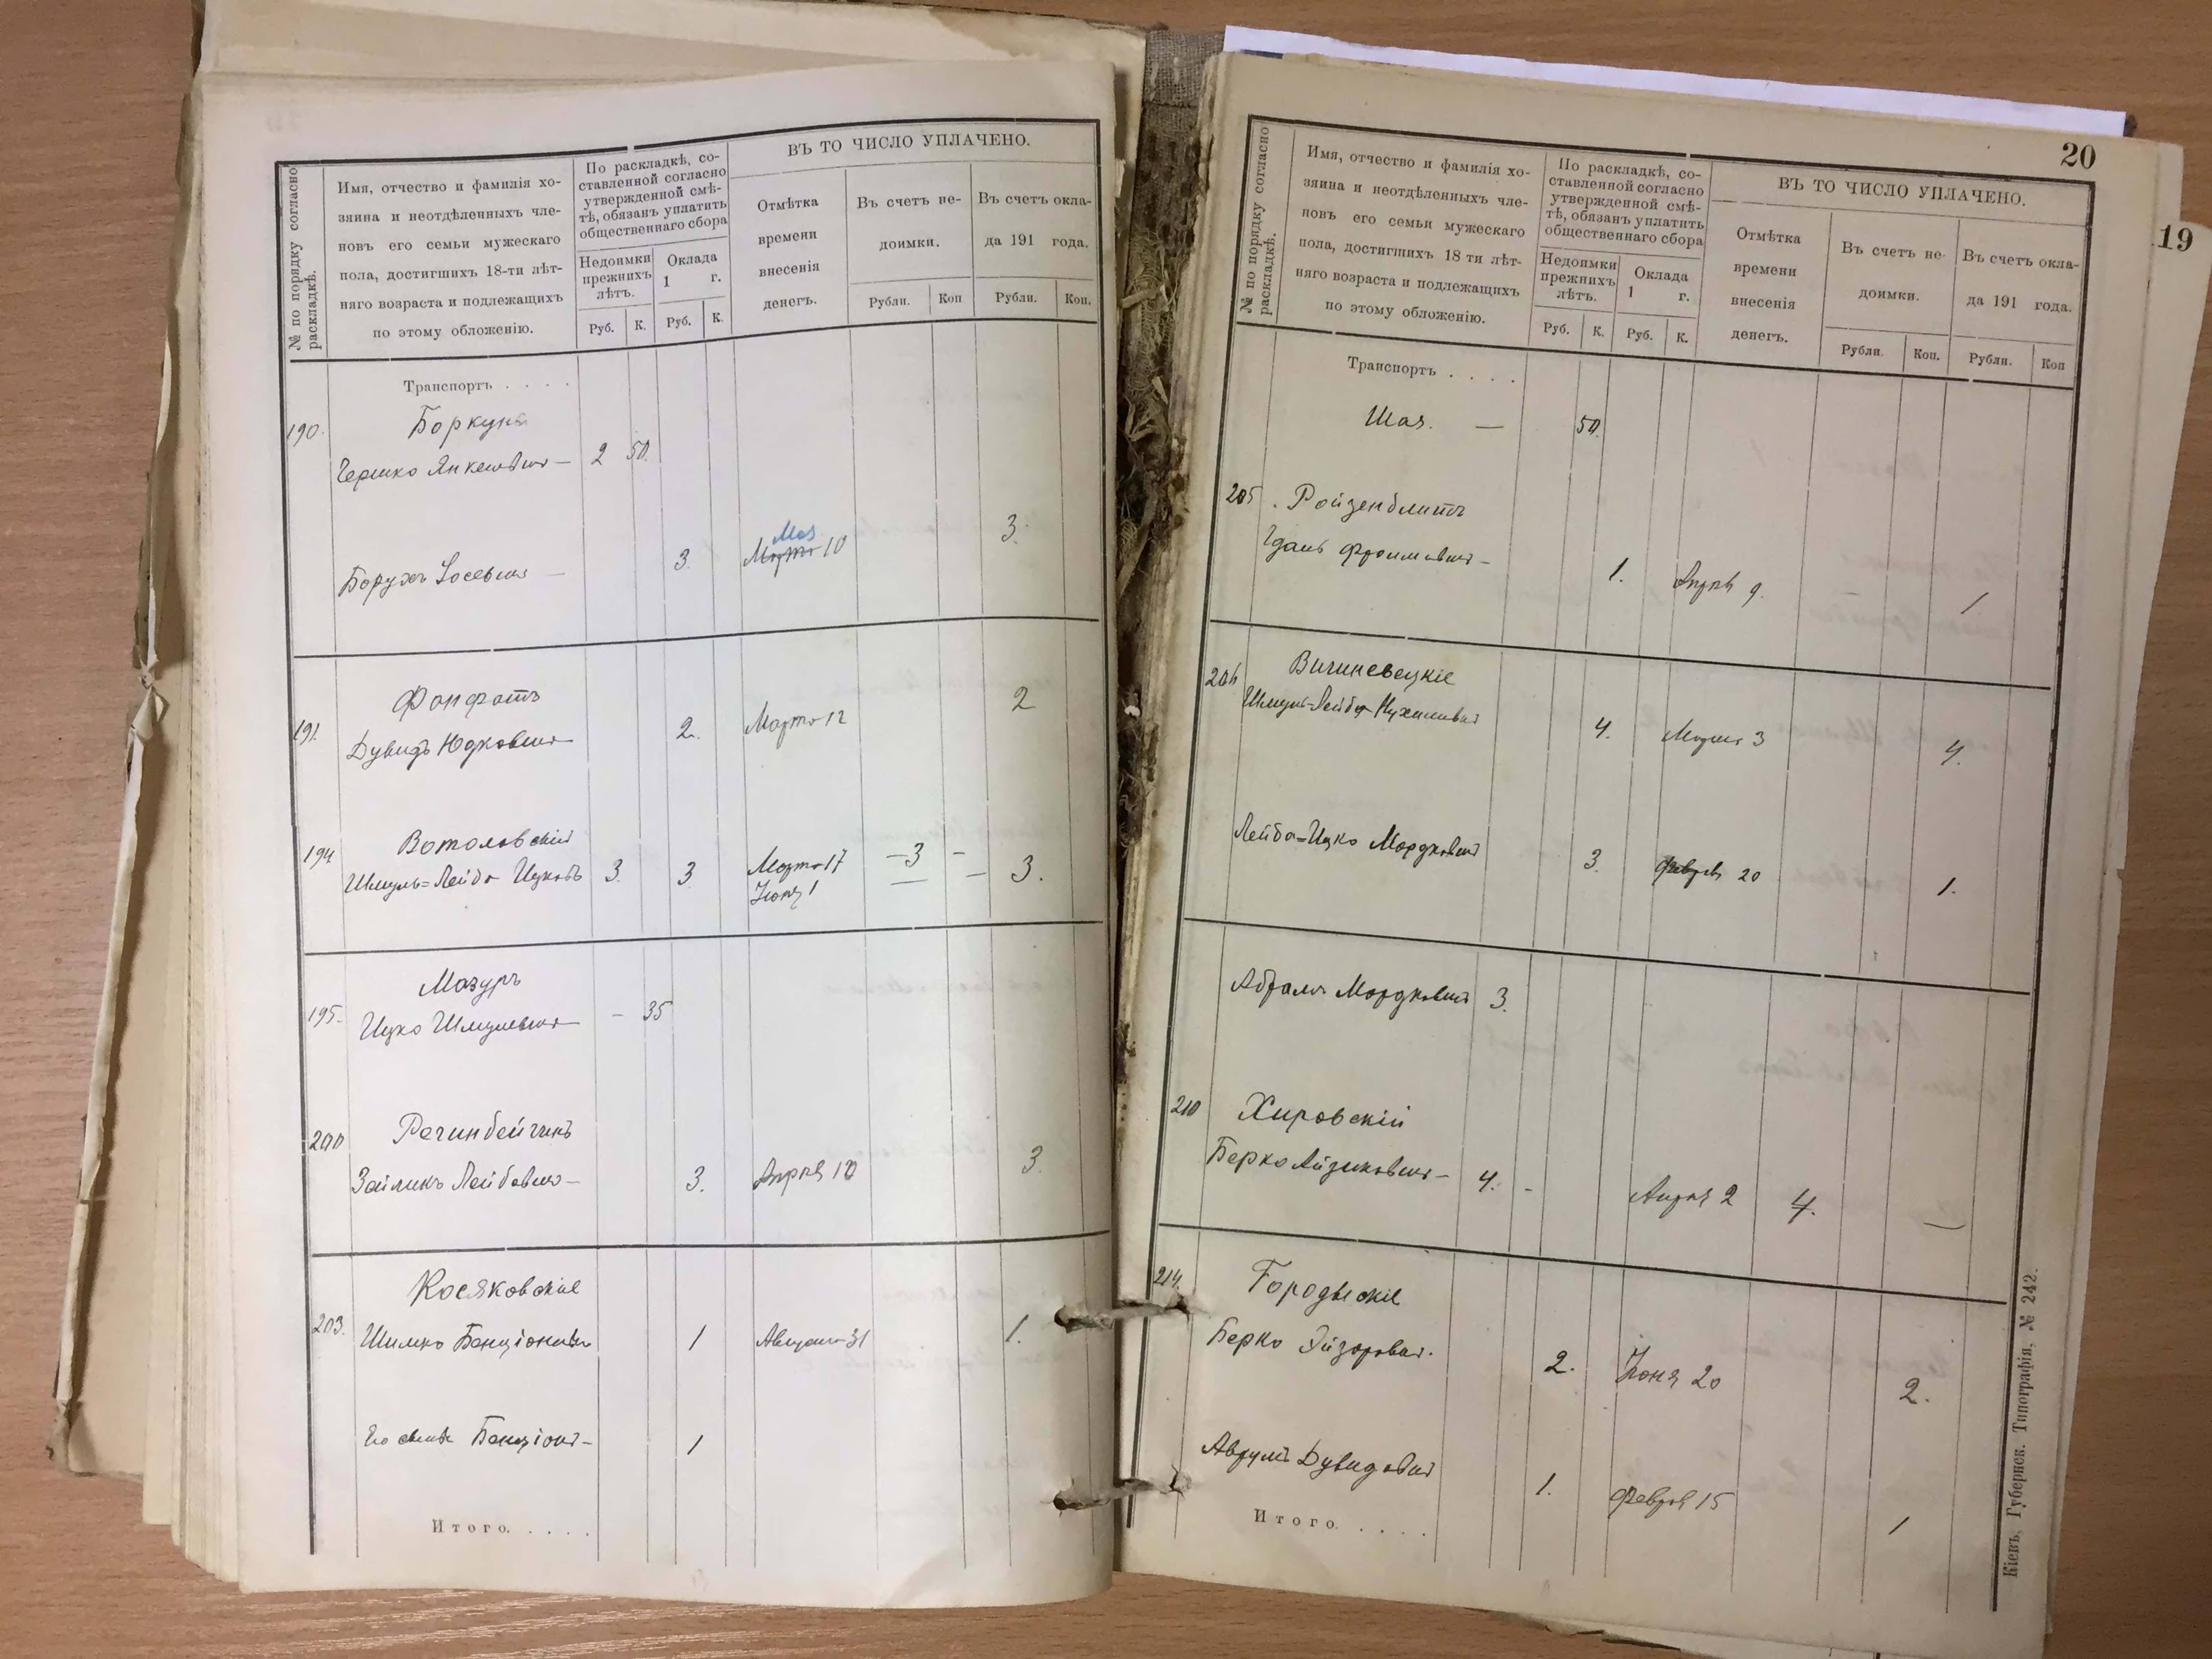 № по порядку согласно раскладкѣ.
Имя, отчество и фамилія хо-
зяина и неотдѣленныхъ чле-
новъ его семьи мужескаго
пола, достигшихъ 18-ти лѣт-
няго возраста и подлежащихъ
по этому обложенію.
По раскладкѣ, со-
ставленной согласно
утвержденной смѣ-
тѣ, обязанъ уплатить
общественнаго сбора
Недоимки
прежнихъ
лѣтъ.
Оклада
1 г.
Руб. К. Руб. К.
ВЪ ТО ЧИСЛО УПЛАЧЕНО.
Отмѣтка
времени
внесенія
денегъ.
Въ счетъ не-
доимки.
Въ счетъ окла-
да 191 года.
Рубли. Коп Рубли. Коп.
Транспортъ . . . .
190. Боркунъ
Гершко Янкелевичъ — 2 50.
Борухъ Іосевичъ — 3. Мая
Марта 10 3.
191. Фонфатъ
Дувидъ Юдковичъ 2. Марта 12 2
194 Вотоловскій
Шмуль=Лейба Ицковъ 3. 3 Марта 17 — 3 — 3.
Іюня 1
195. Мазуръ
Ицко Шмулевичъ — 35
200 Речинбейчикъ
Зейликъ Лейбовичъ — 3. Апрѣля 10 3.
203. Косяковскіе
Шимко Бенціоновъ 1 Августа 31 1.
Его сынъ Бенціонъ — 1
Итого. . . . .
20
19
№ по порядку согласно раскладкѣ.
Имя, отчество и фамилія хо-
зяина и неотдѣленныхъ чле-
новъ его семьи мужескаго
пола, достигшихъ 18 ти лѣт-
няго возраста и подлежащихъ
по этому обложенію.
По раскладкѣ, со-
ставленной согласно
утвержденной смѣ-
тѣ, обязанъ уплатить
общественнаго сбора
Недоимки
прежнихъ
лѣтъ.
Оклада
1 г.
Руб. К. Руб. К.
ВЪ ТО ЧИСЛО УПЛАЧЕНО.
Отмѣтка
времени
внесенія
денегъ.
Въ счетъ не-
доимки.
Въ счетъ окла-
да 191 года.
Рубли. Коп. Рубли. Коп
Транспортъ . . . .
Шая. — 50.
205. Ройзенблитъ
Фроимовичъ — 1. Апрѣля 9. 1
206 Вишневецкіе
Шмуль=Лейба Нухимовичъ 4. Марта 3 4.
Лейба=Ицко Мордковичъ 3. Февраля 20 1.
Абрамъ Мордковичъ 3.
210 Хировскій
Берко Айзиковичъ — 4. - Апрѣля 2 4. —
214. Городыскіе
Берко Эйзоровичъ. 2. Іюня 20 2.
Аврумъ Дувидовичъ 1. Февраля 15 1
Итого. . . . .
Кіевъ, Губернск. Типографія, № 242.